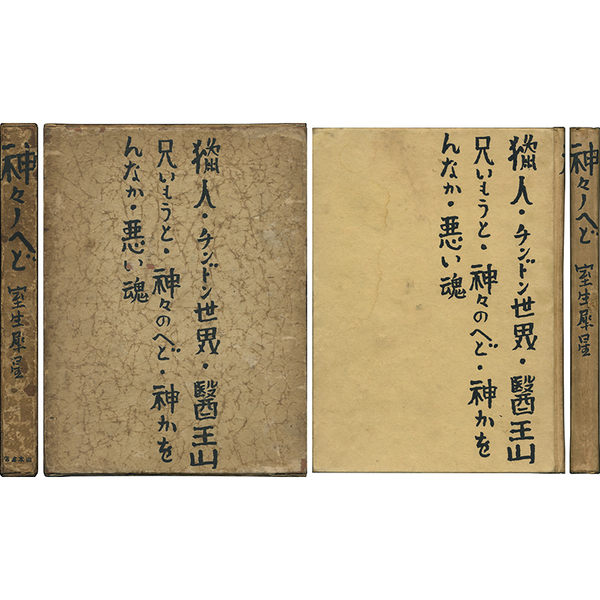 神々ノへど 室生犀星
獵人・チンドン世界・醫王山
兄いもうと・神々のへど・神かを
んなか・悪い魂
獵人・チンドン世界・醫王山
兄いもうと・神々のへど・神かを
んなか・悪い魂
神々ノへど 室生犀星